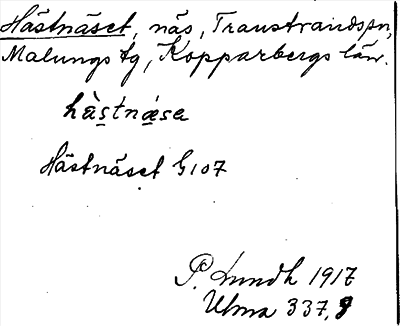 Hästnäset, näs, Transtrands sn,
Malungs tg, Kopparbergs län.
hä̀stnäsa
Hästnäset G107
P. Lundh 1917
Ulma 337,9